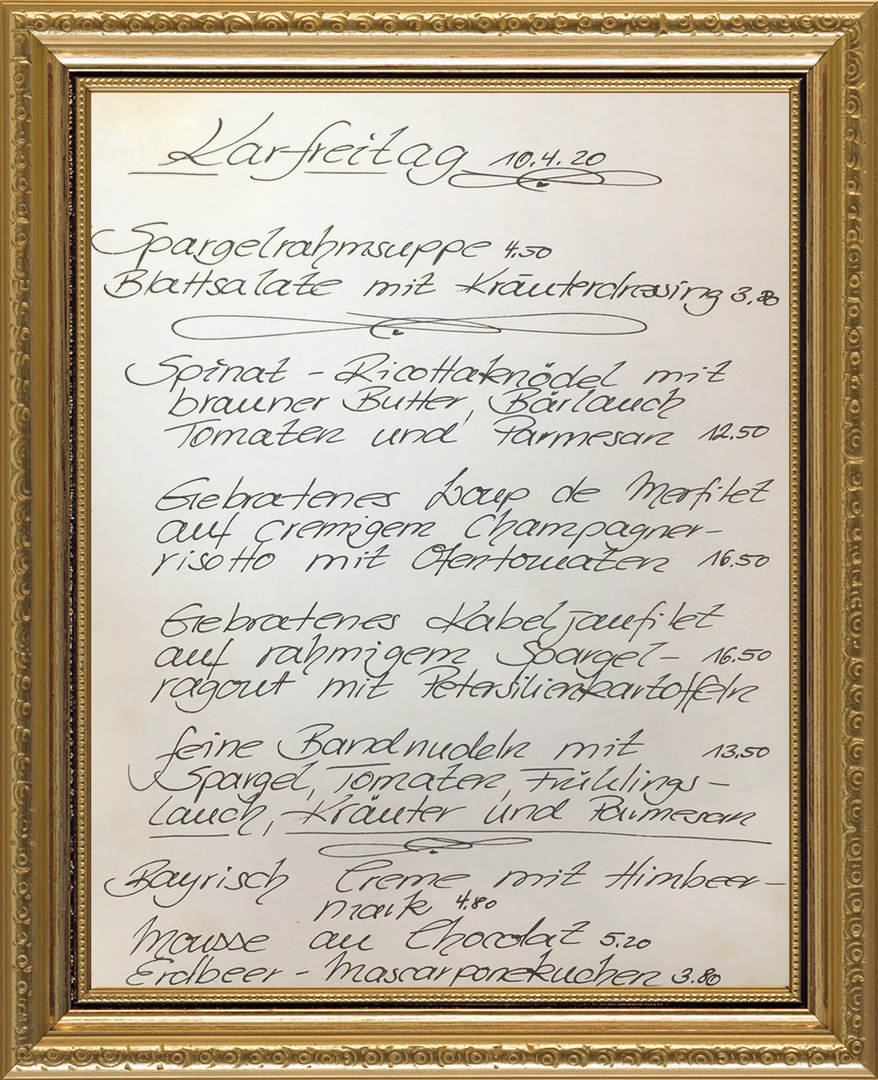 Karfreitag 10.4.20
Spargelrahmsuppe 4.50
Blattsalate mit Kräuterdressing 3.80
Spinat - Ricottaknödel mit
brauner Butter, Bärlauch
Tomaten und Parmesan 12.50
Gebratenes Loup de Merfilet
auf cremigem Champagner-
risotto mit Ofentomaten 16.50
Gebratenes Kabeljaufilet
auf rahmigem Spargel- 16.50
ragout mit Petersilienkartoffeln
feine Bandnudeln mit 13.50
Spargel, Tomaten, Frühlings-
lauch, Kräuter und Parmesan
Bayrisch Creme mit Himbeer-
mark 4.80
Mousse au Chocolat 5.20
Erdbeer - Mascarponekuchen 3.80